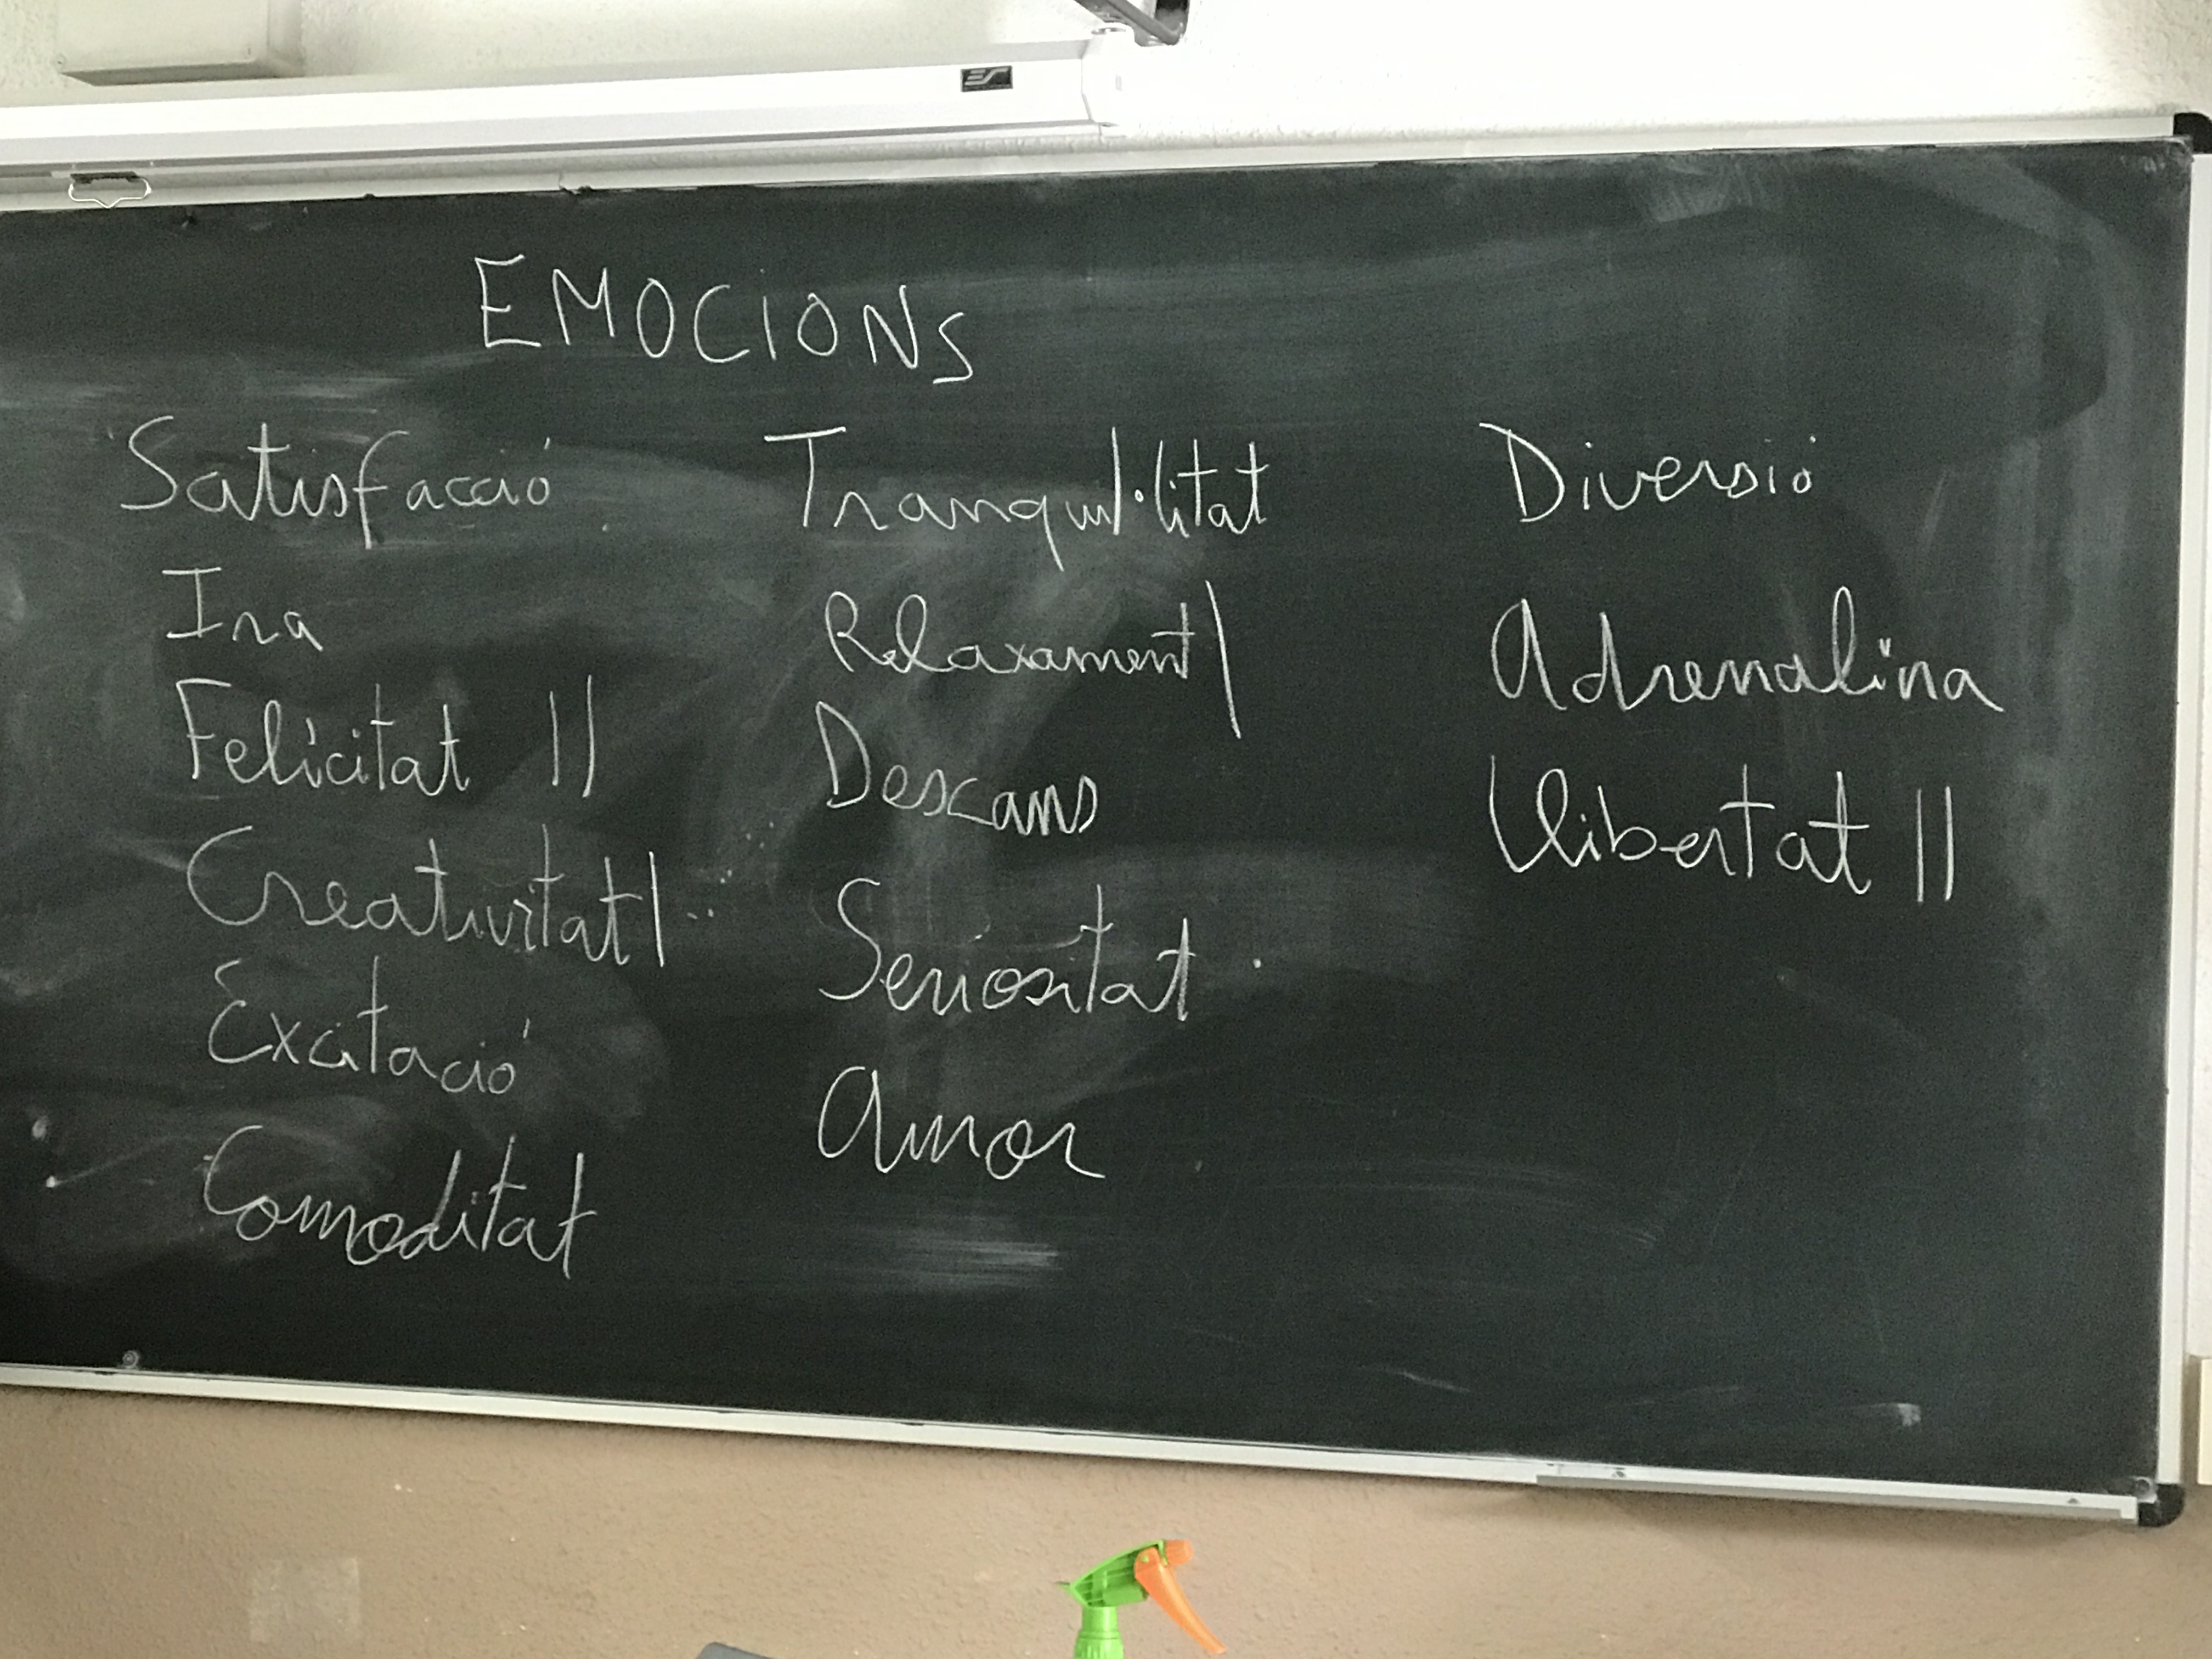 EMOCIONS
Satisfacció
Ira
Felicitat ||
Creativitat |
Excitació
Comoditat
Tranquil·litat
Relaxament |
Descans
Seriositat
Amor
Diversió
Adrenalina
Llibertat ||
ES